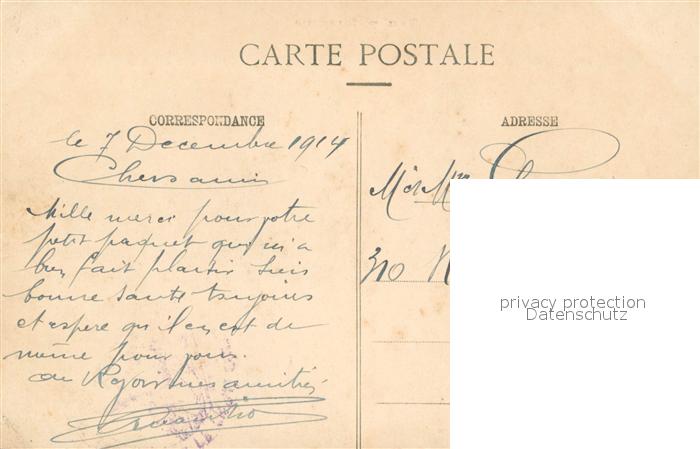 CARTE POSTALE
CORRESPONDANCE
ADRESSE
le 7 Decembre 1914
Chers amis
Mille merci pour votre
petit paquet qui m'a
bien fait plaisir Suis
bonne santé toujours
et espere qu'il en est de
même pour vous.
mes amitiés
M et Mme
310
privacy protection
Datenschutz